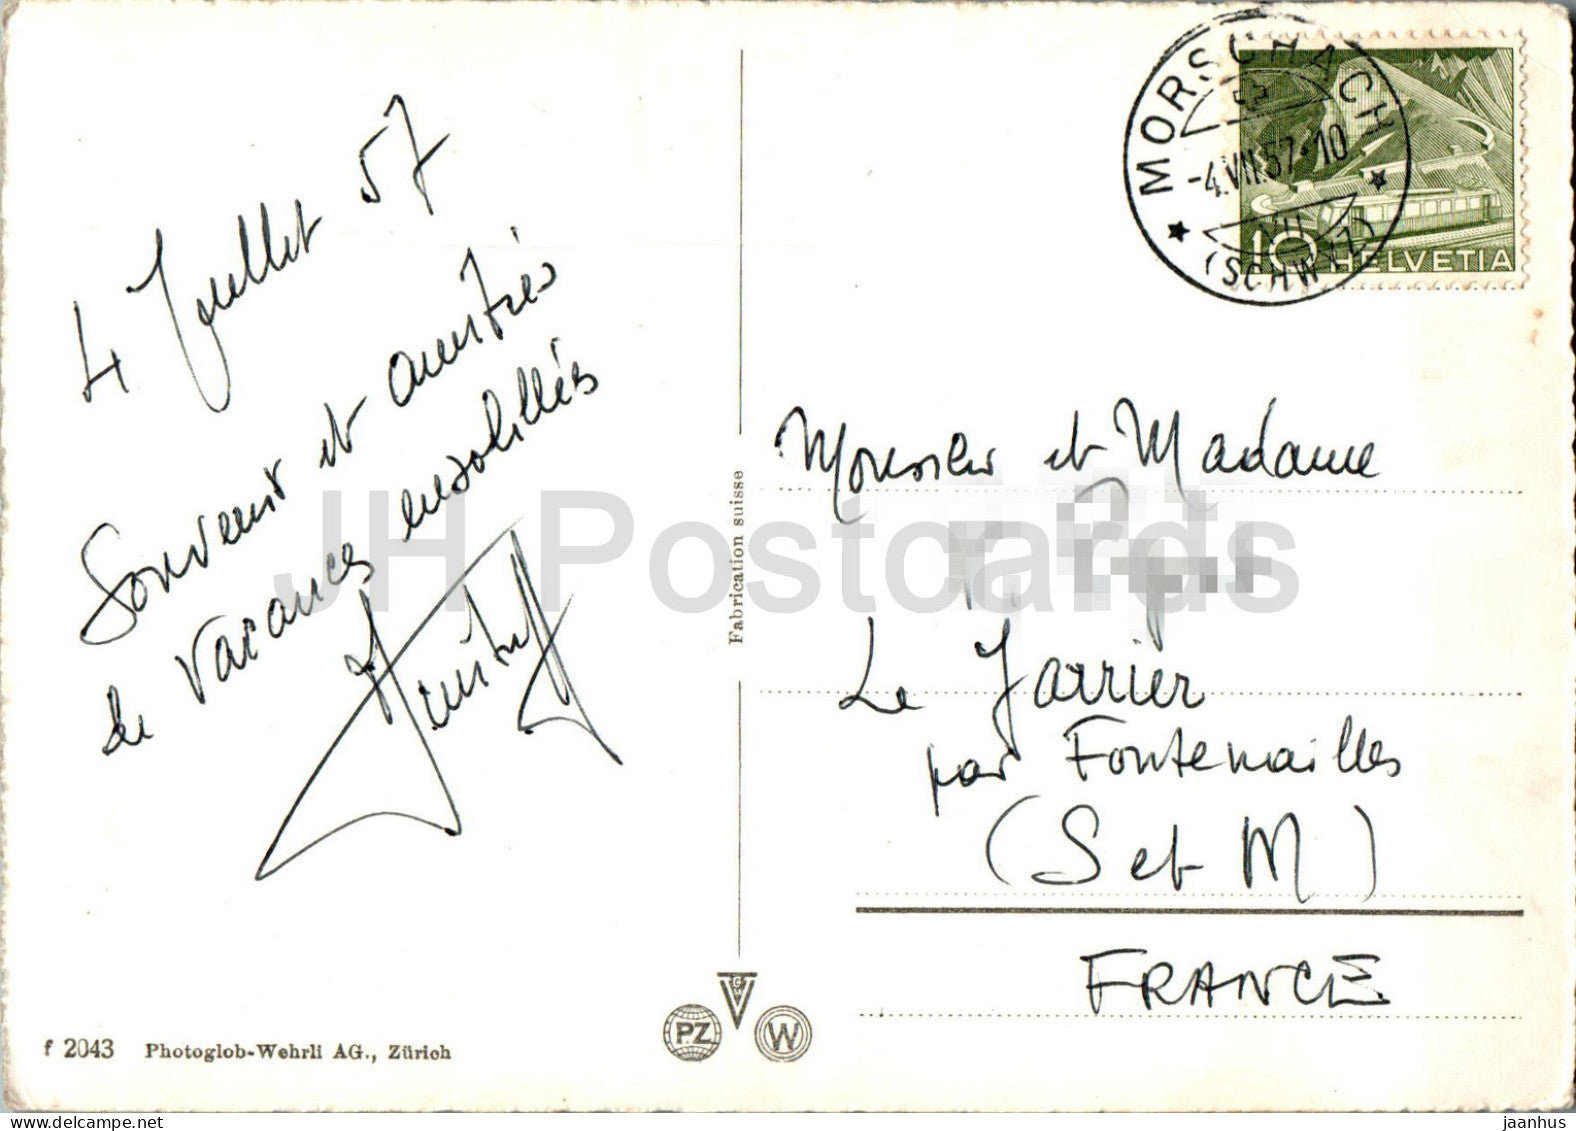 4 Juillet 57
Souvenir et amitiés
de vacances ensoleillées
MORSCHACH
-4.VII.57-10
VII
(SCHWYZ)
10 HELVETIA
Monsieur et Madame
Le Jarrier
par Fontenailles
(S et M)
FRANCE
Fabrication suisse
PZ
W
f 2043 Photoglob-Wehrli AG., Zürich
JH Postcards
jaanhus